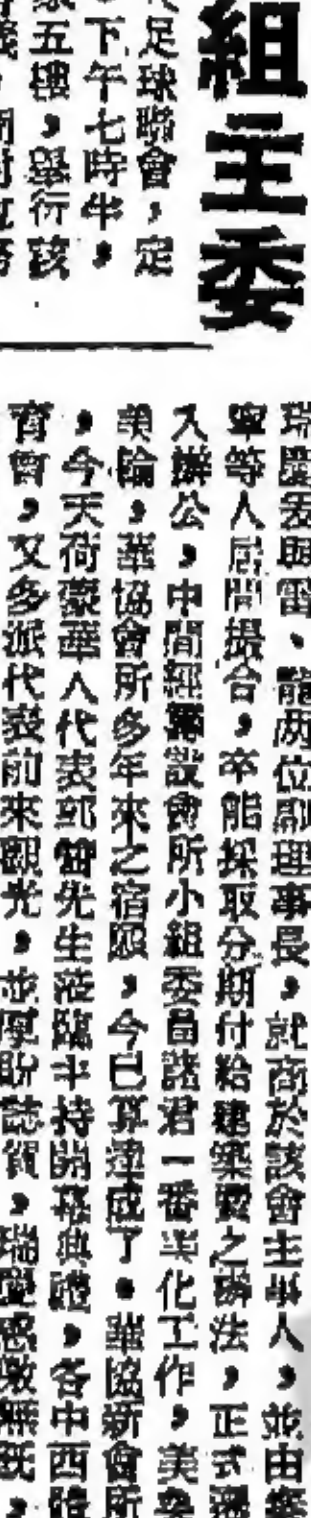 組主委
足球聯會，定
下午七時半，
五樓，舉行該
瑞慶爰與雷、龍兩位副理事長，就商於該會主事人，並由
寧等人居間撮合，卒能採取分期付給建築費之辦法，正式遷
入辦公，中間經籌設會所小組委員諸君一番美化工作，美奐
美輪，華協會所多年來之宿願，今已算達成了。華協新會所
，今天荷蒙華人代表郭贊先生蒞臨主持開幕典禮，各中西
育會，又多派代表前來觀光，並厚貺誌賀，瑞慶感激無既，